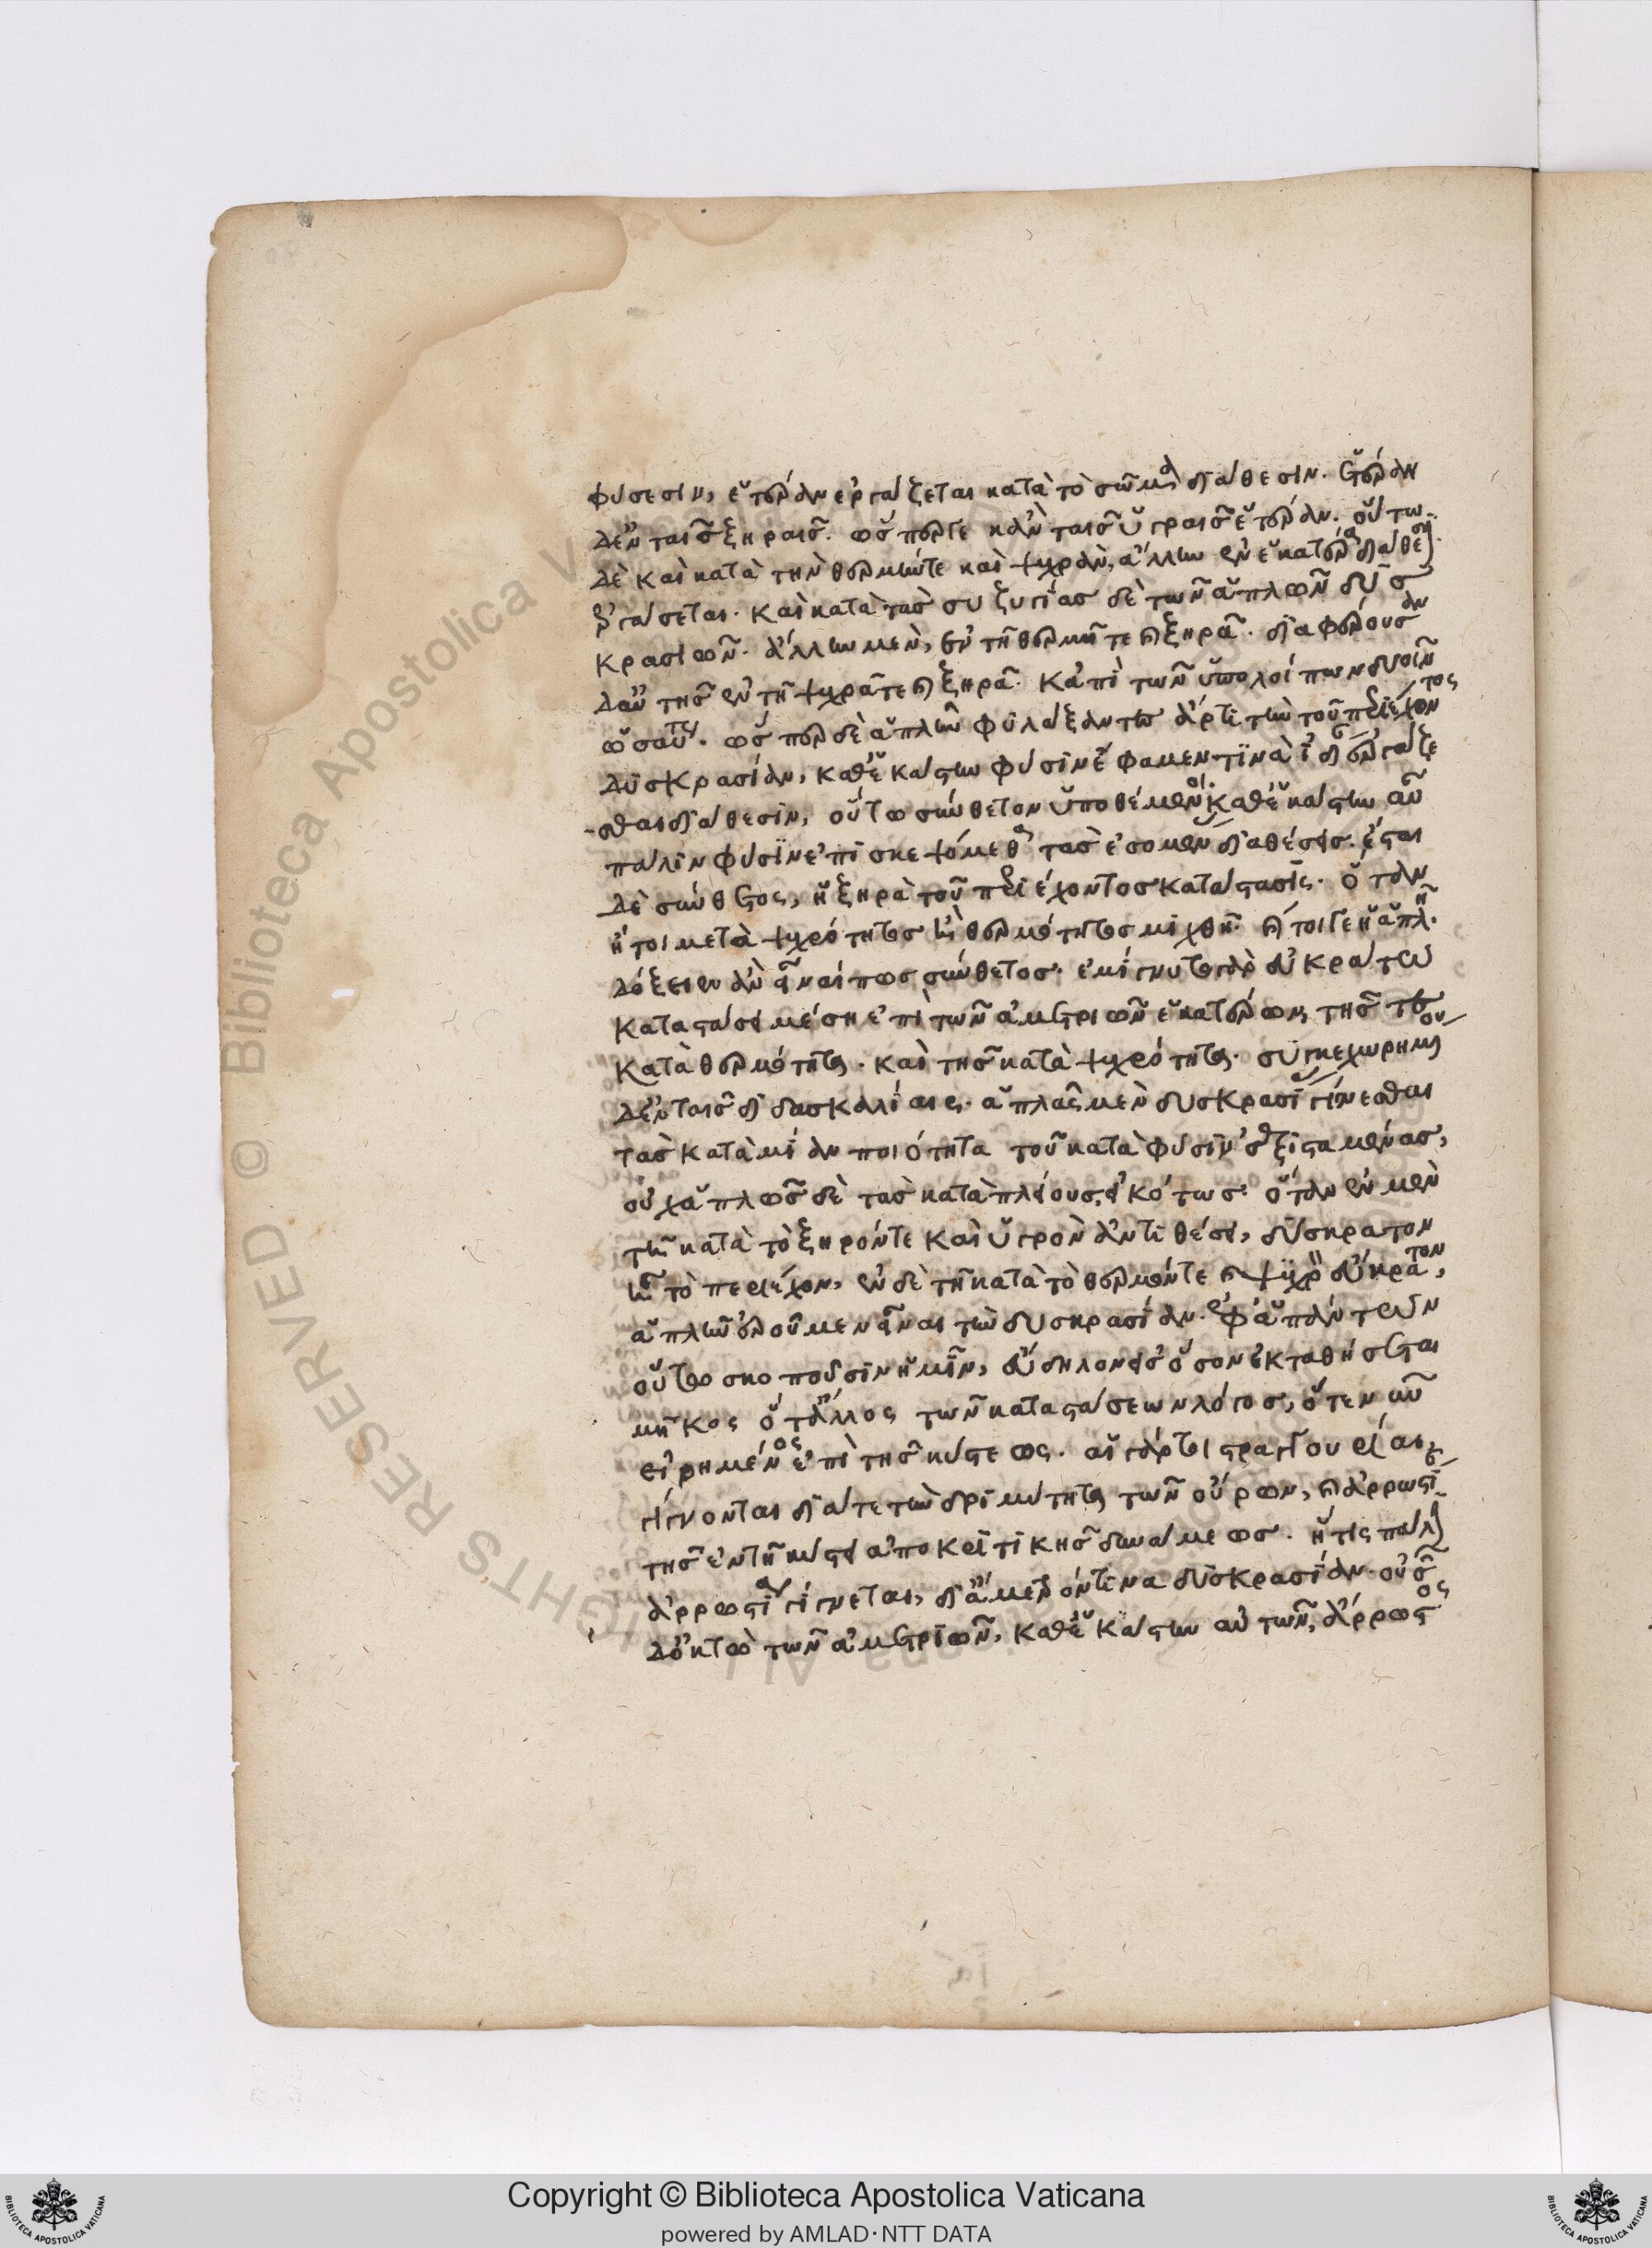 φύσεσιν, ἑτέραν ἐργάζεται κατὰ τὸ σῶμα διάθεσιν. ἑτέραν
δ' ἐν ταῖς ξηραῖς. ὥσπερ γε κἀν ταῖς ὑγραῖς ἑτέραν. οὕτω
δὲ καὶ κατὰ τὴν θερμήν τε καὶ ψυχράν, ἄλλην ἐν ἑκατέρα διάθεσιν
ἐργάσεται. καὶ κατὰ τὰς συζυγίας δὲ τῶν ἁπλῶν δυσ
κρασιῶν. ἄλλην μὲν, ἐν τῆ θερμῆ τε καὶ ξηρᾶ. διαφέρουσαν
δ' αὖ τῆς ἐν τῆ ψυχρᾶ τε καὶ ξηρᾶ. κἀπὶ τῶν ὑπολοίπων δυοῖν
ὡσαύτως. ὥσπερ δὲ ἁπλῆν φυλάξαντες ἄρτι τὴν τοῦ περιέχοντος
δυσκρασίαν, καθ' ἑκάστην φύσιν ἔφαμεν τινὰ ἰδίαν ἐργάζε
σθαι διάθεσιν, οὕτω σύνθετον ὑποθέμενοι. καθ' ἑκάστην αὖ
πάλιν φύσιν ἐπισκεψόμεθα τὰς ἐσομένας διαθέσεις. ἔσται
δὲ σύνθετος, ἡ ξηρὰ τοῦ περιέχοντος κατάστασις. ὅταν
ἤτοι μετὰ ψυχρότητος ἢ θερμότητος μιχθῆ. καίτοι γε ἡ ἁπλῆ.
δόξειεν ἂν εἶναί πως σύνθετος. ἐμίγνυτο γὰρ εὐκράτω
καταστάσει μέση ἐπὶ τῶν ἀμετριῶν ἑκατέρων, τῆς τε
κατὰ θερμότητα. καὶ τῆς κατὰ ψυχρότητα. συγκεχώρηται
δ' ἐν ταῖς διδασκαλίαις. ἁπλᾶς μὲν δυσκρασίας γίνεσθαι
τὰς κατὰ μίαν ποιότητα τοῦ κατὰ φύσιν ἐξισταμένας,
οὐχ ἁπλῶς δὲ τὰς κατὰ πλείους, εἰκότως. ὅταν ἐν μὲν
τῆ κατὰ τὸ ξηρόν τε καὶ ὑγρὸν ἀντιθέσει, δύσκρατον
ἦ τὸ περιέχον, ἐν δὲ τῆ κατὰ τὸ θερμόν τε καὶ ψυχρὸν εὔκρατον,
ἁπλῆν ἐροῦμεν εἶναι τὴν δυσκρασίαν. ἐφ' ἁπάντων
οὕτω σκοποῦσιν ἡμῖν, εὔδηλον εἰς ὅσον ἐκταθήσεται
μῆκος ὅ τ' ἄλλος τῶν καταστάσεων λόγος, ὅ τε νῦν
εἰρημένος ἐπὶ τῆς κύστεως. αἱ γάρ τοι στραγγουρίαι
γίγνονται διά τε τὴν δριμύτητα τῶν οὔρων, καὶ ἀρρωστί
της ἐν τῆ κύστει ἀποκριτικῆς δυνάμεως. ἥτις πάλιν
ἀρρωστία γίγνεται, διὰ μὲν ὁντινα δυσκρασίαν. οὐσῶν
δ' ὀκτὼ τῶν ἀμετριῶν, καθ' ἑκάστην αὐτῶν, ἄρρωστος